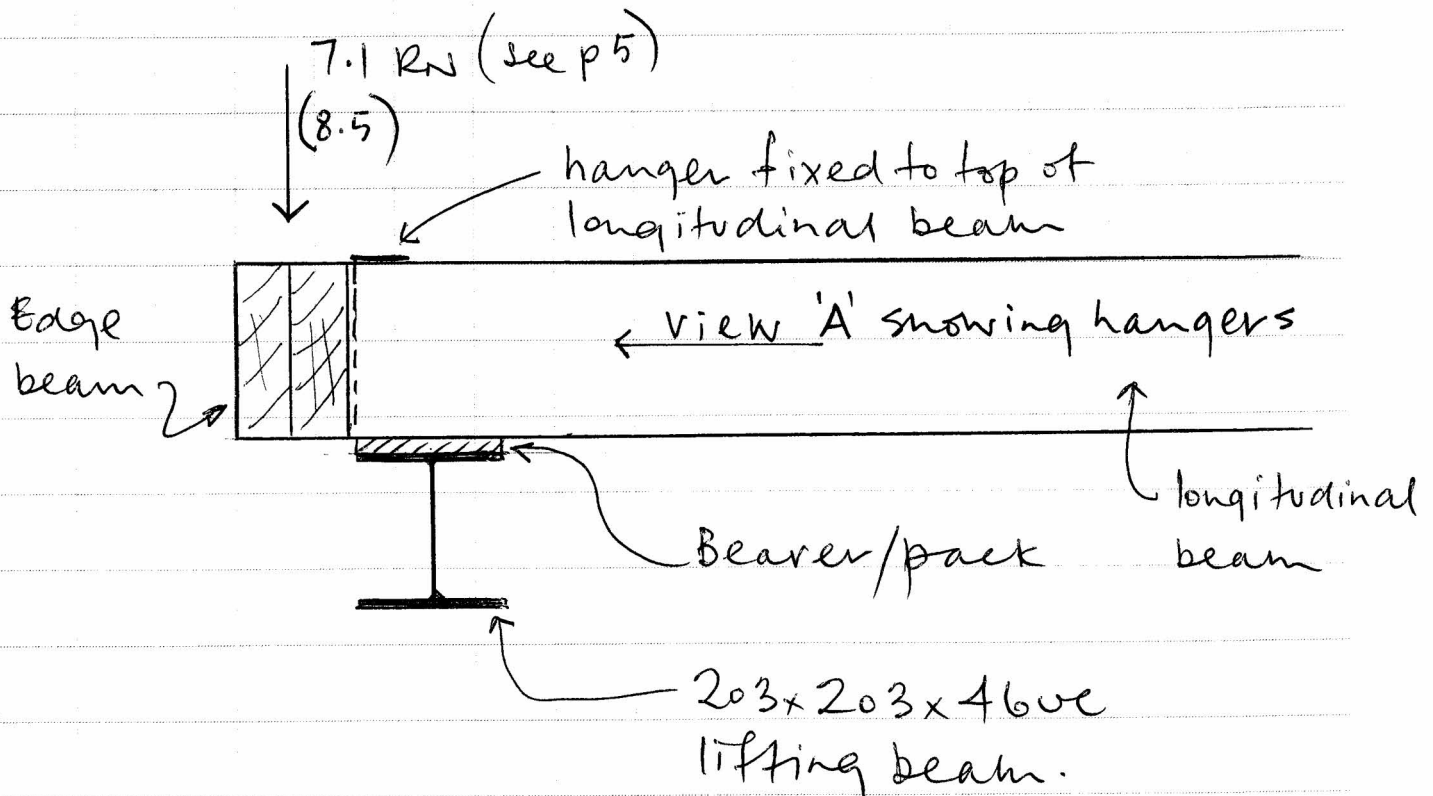 7.1 kN (see p 5)
(8.5)
hanger fixed to top of
longitudinal beam
Edge
beam
view 'A' showing hangers
longitudinal
beam
Bearer/pack
203x203x46uc
lifting beam.